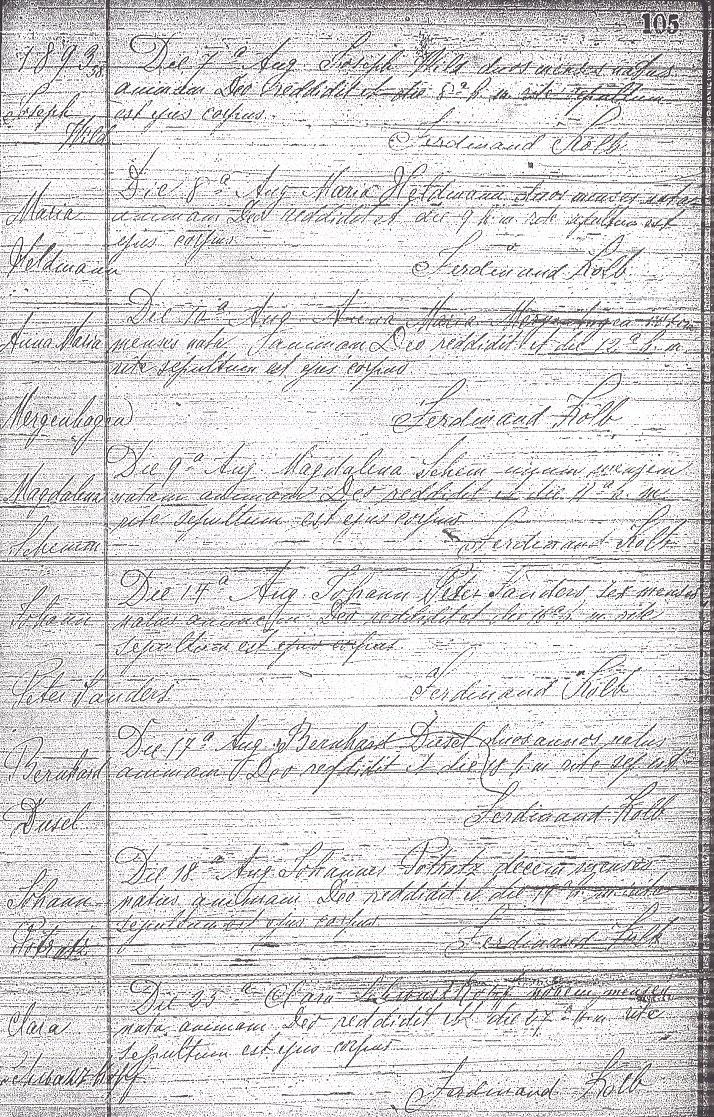 105
1893
Joseph
Wild
Die 7ª Aug Joseph Wild duos menses natus
animam Deo reddidit et die 8ª h. m. rite sepultum
est ejus corpus.
Ferdinand Kolb
Maria
Heldmann
Die 8ª Aug Maria Heldmann duos menses nata
animam Deo reddidit et die 9 h. m. rite sepultum est
ejus corpus
Ferdinand Kolb
Anna Maria
Mergenhagen
Die Aug Anna Maria Mergenhagen
menses nata animam Deo reddidit et die 12ª h. m.
rite sepultum est ejus corpus
Ferdinand Kolb
Magdalena
Die 9ª Aug Magdalena Schem unum mensem
natam animam Deo reddidit et die 11ª h. m.
rite sepultum est ejus corpus
Ferdinand Kolb
Johann
Peter Sanders
Die 14ª Aug Johann Peter Sanders sex menses
natus animam Deo reddidit et die h. m. rite
sepultum est ejus corpus
Ferdinand Kolb
Bernhard
Dusel
Die 17ª Aug Bernhard Dusel duos annos natus
animam Deo reddidit et die 18 h. m. rite sepult
Ferdinand Kolb
Johann
Potratz
Die 18ª Aug Johannes Potratz decem menses
natus animam Deo reddidit et die 19 h. m. rite
sepultum est ejus corpus
Ferdinand Kolb
Clara
Die 25ª Clara novem menses
nata animam Deo reddidit et die 27ª h. m. rite
sepultum est ejus corpus
Ferdinand Kolb